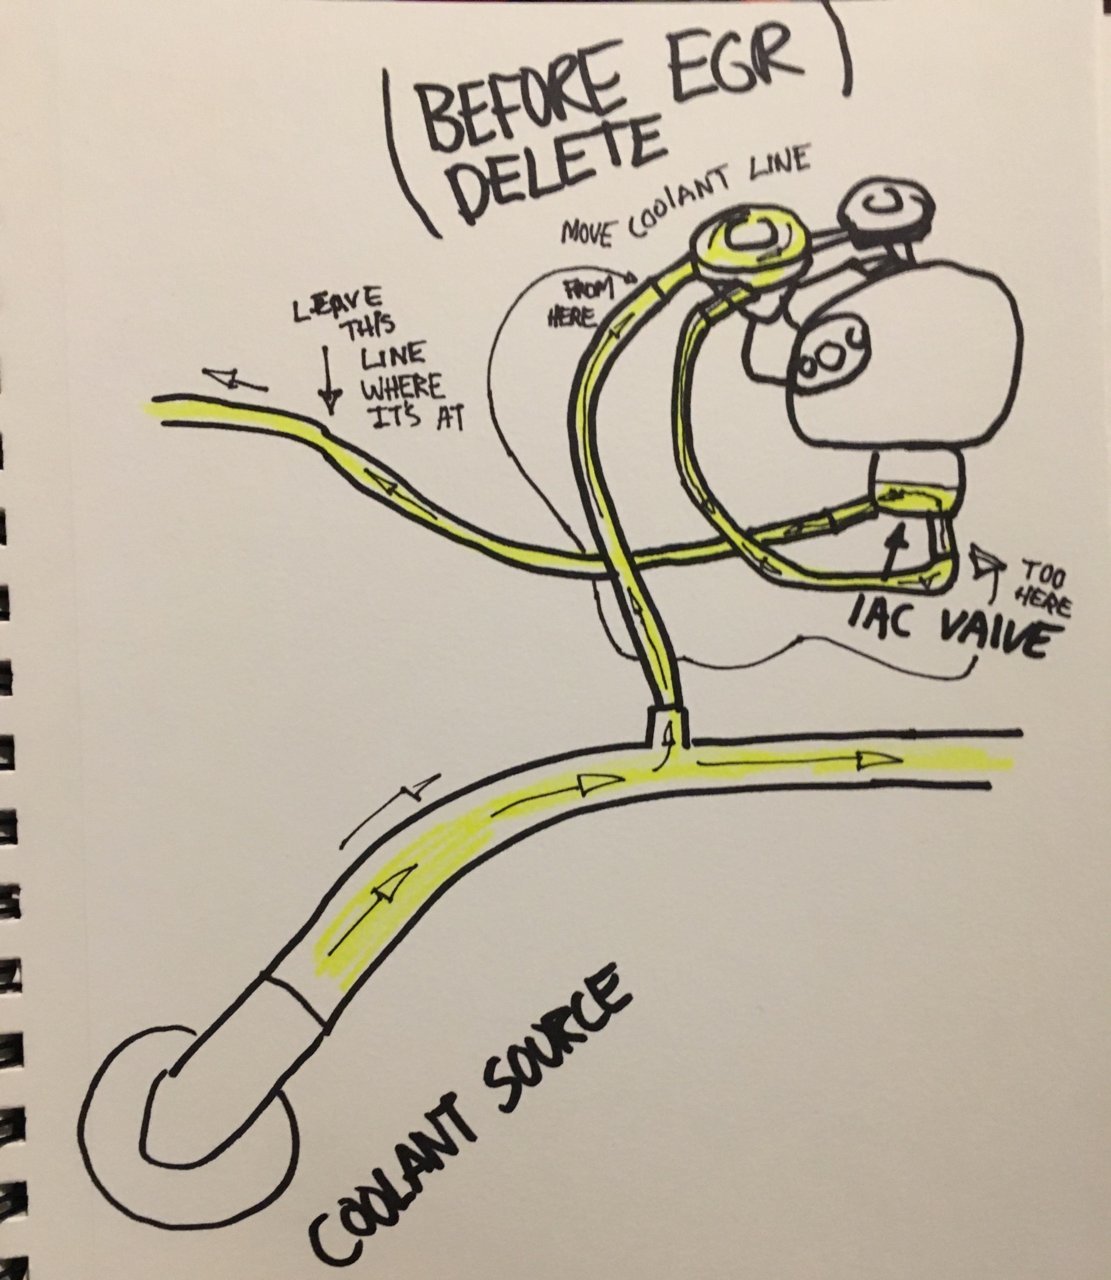 (BEFORE EGR)
DELETE
MOVE COOLANT LINE
FROM
HERE
LEAVE
THIS
LINE
WHERE
IT'S AT
TOO
HERE
IAC VALVE
COOLANT SOURCE